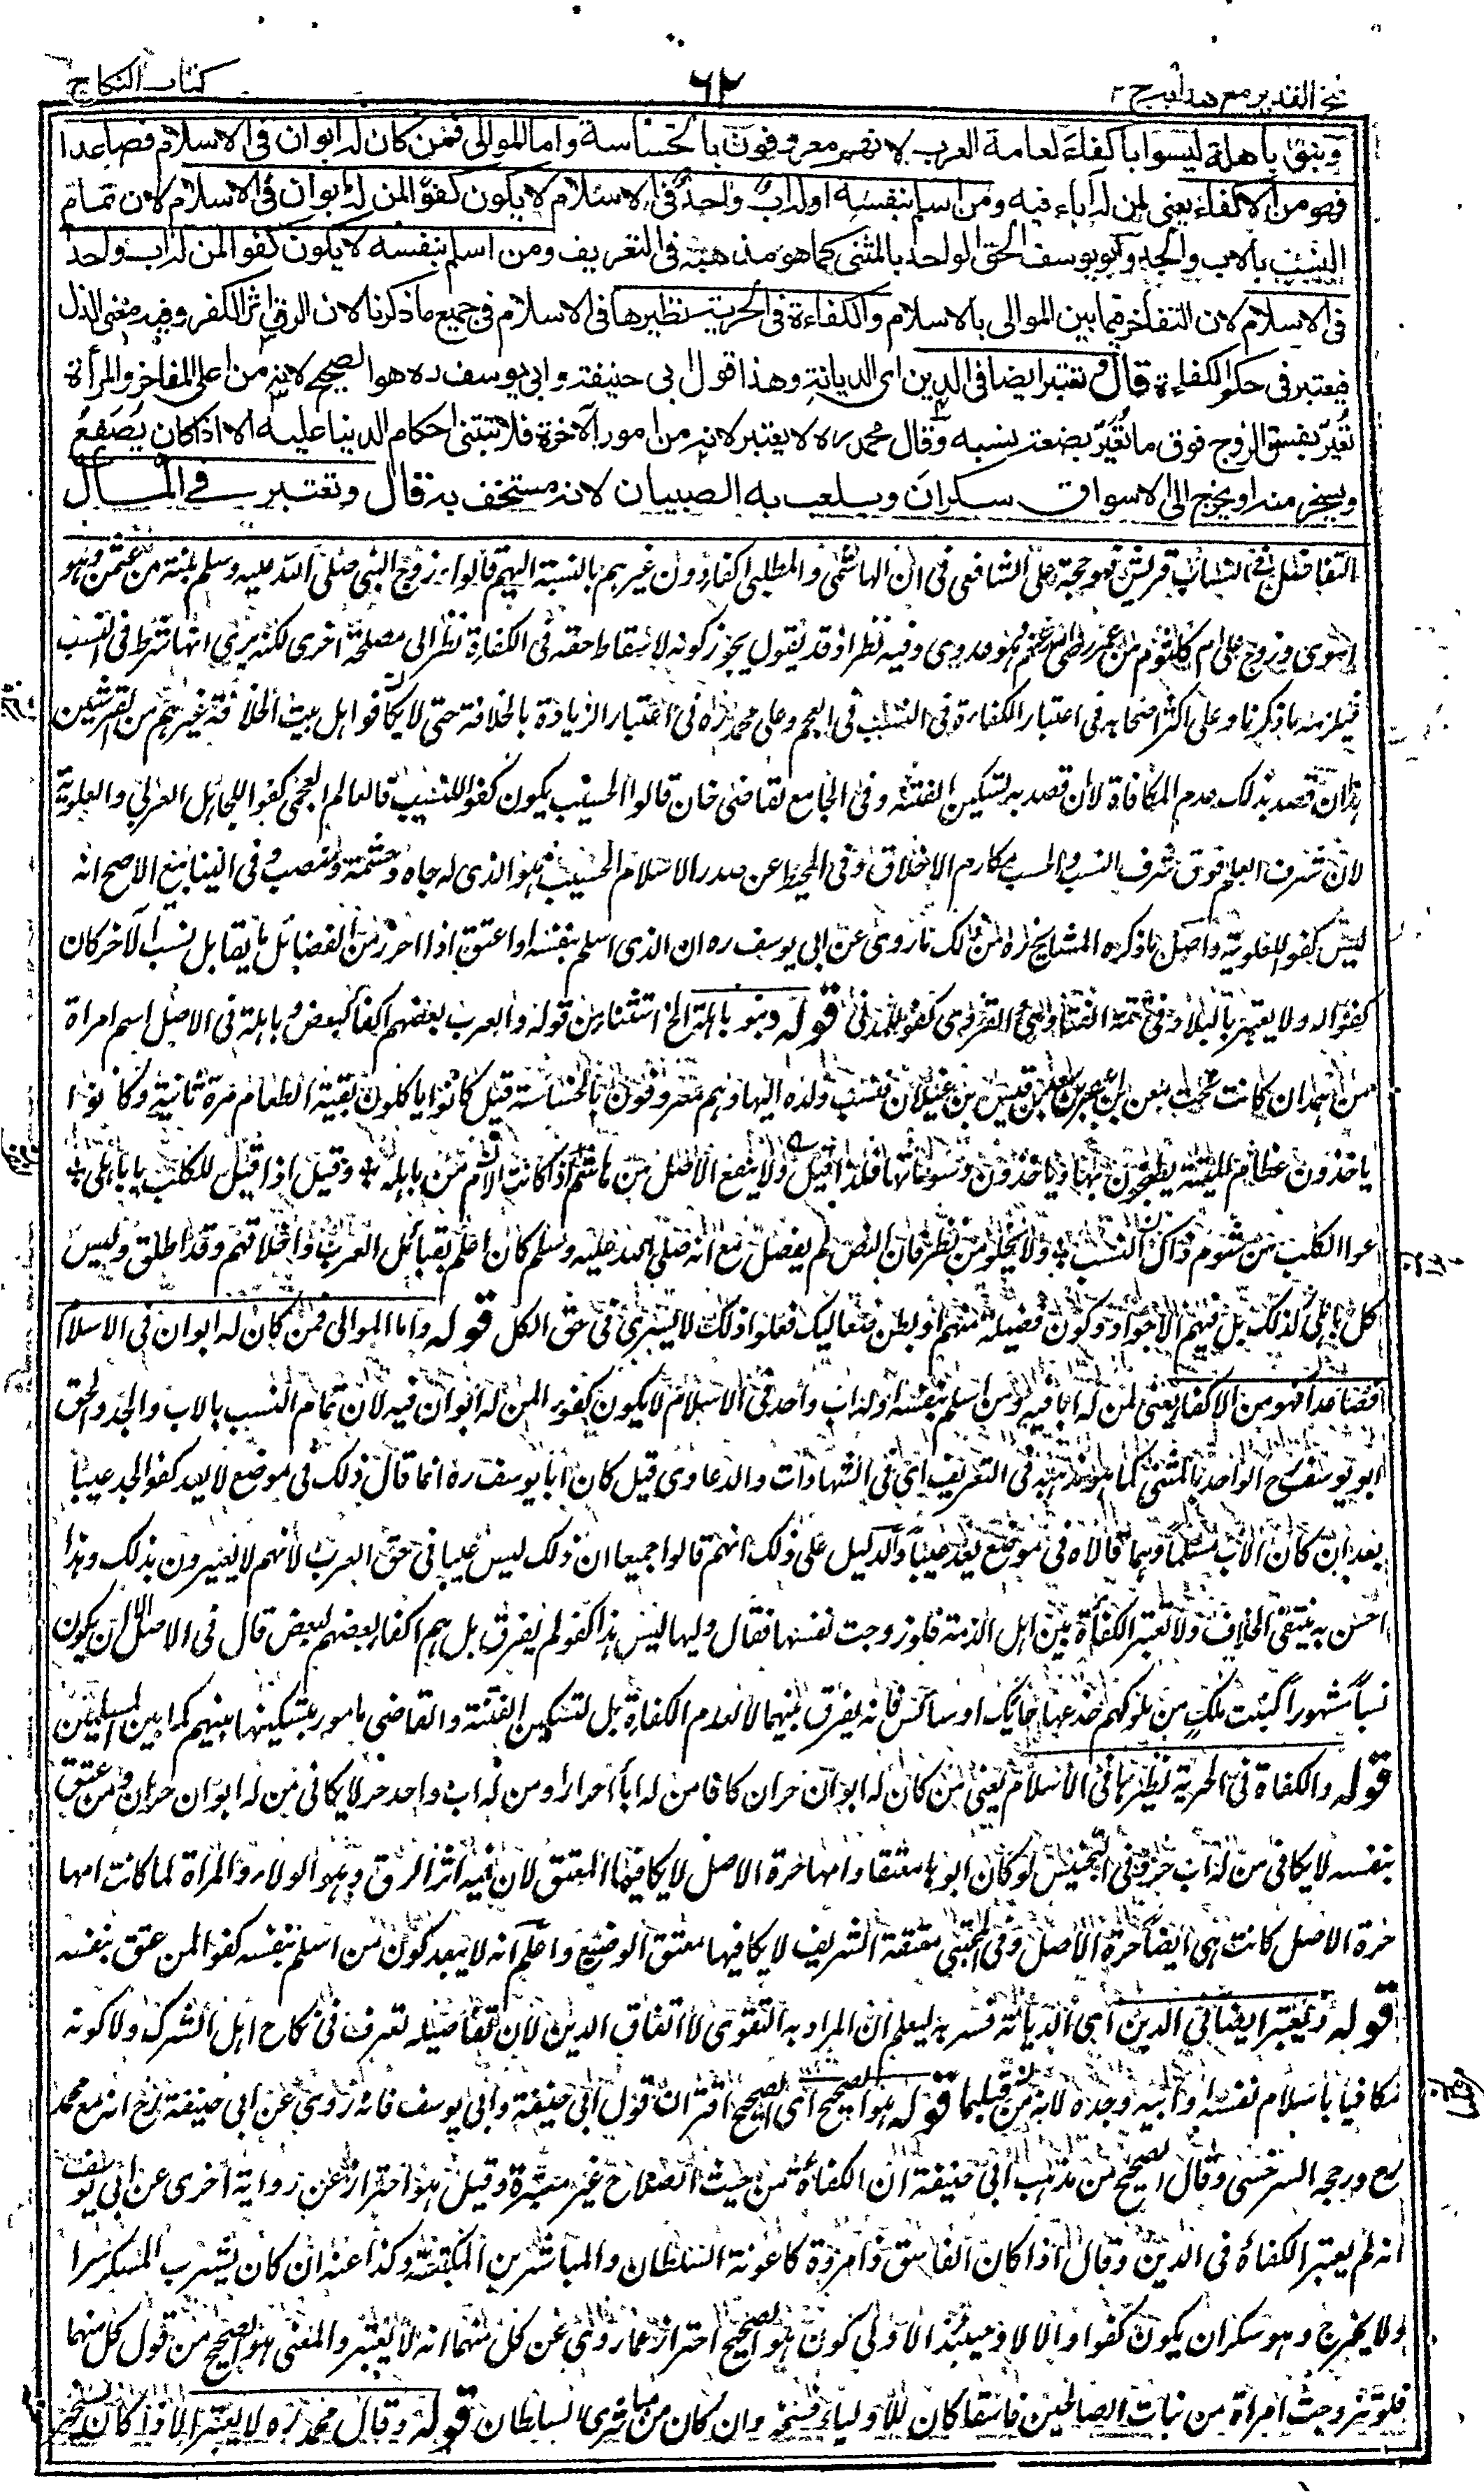 فتح القدير مع هدايه ج ٢
٦٢
كتاب النكاح
وبنو باهلة ليسوا باكفاء لعامة العرب لانهم معروفون بالخساسة واما الموالى فمن كان له ابوان فى الاسلام فصاعدا
فهو من الاكفاء يعنى لمن له آباء فيه ومن اسلم بنفسه او له اب واحد فى الاسلام لا يكون كفوا لمن له ابوان فى الاسلام لان تمام
النسب بالاب والجد وابو يوسف الحق الواحد بالمثنى كما هو مذهبه فى التعريف ومن اسلم بنفسه لا يكون كفوا لمن له اب واحد
فى الاسلام لان التفاخر فيما بين الموالى بالاسلام والكفاءة فى الحرية نظيرها فى الاسلام فى جميع ما ذكرنا لان الرق اثر الكفر وفيه معنى الذل
فيعتبر فى حكم الكفاءة قال وتعتبر ايضا فى الدين اى الديانة وهذا قول ابى حنيفة وابى يوسف ره هو الصحيح لانه من اعلى المفاخر والمرأة
تُعَيَّر بفسق الزوج فوق ما تُعَيَّر بضعة نسبه وقال محمد ره لا يعتبر لانه من امور الآخرة فلا تبتنى احكام الدنيا عليه الا اذا كان يُصفَعُ
ويسخر منه او يخرج الى الاسواق سكران ويلعب به الصبيان لانه مستخف به قال وتعتبر فى المال
التفاضل فى انساب قريش فهو حجة على الشافعى فى ان الهاشمى والمطلبى اكفاء دون غيرهم بالنسبة اليهم قالوا زوج النبى صلى الله عليه وسلم بنته من عثمن وهو
اموى وزوج على ام كلثوم من عمر رضى الله عنهم وهو عدوى وفيه نظر اذ قد يقول يجوز كونه لاسقاط حقه فى الكفاءة نظرا الى مصلحة اخرى لكنه يرى انها تشترط فى النسب
فيلزمه ما ذكرنا وعلى اكثر اصحابه فى اعتبار الكفاءة فى النسب فى العجم وعلى محمد ره فى اعتبار الزيادة بالخلافة حتى لا يكافوا اهل بيت الخلافة غيرهم من القرشيين
هذا ان قصد بذلك عدم المكافاة لا ان قصد به تسكين الفتنة وفى الجامع لقاضى خان قالوا الحسيب يكون كفوا للنسيب فالعالم العجمى كفوا للجاهل العربى والعلوية
لان شرف العلم فوق شرف النسب والحسب مكارم الاخلاق وفى المحيط عن صدر الاسلام الحسيب هو الذى له جاه وحشمة ومنصب وفى الينابيع الاصح انه
ليس كفوا للعلوية واصل ما ذكره المشايخ ره من ذلك ما روى عن ابى يوسف ره ان الذى اسلم بنفسه او اعتق اذا احرز من الفضائل ما يقابل نسب الآخر كان
كفوا له ولا يعتبر بالبلاد وفى تتمة الفتاوى القروى كفو للمدنى قوله وبنو باهلة الخ استثناء من قوله والعرب بعضهم اكفاء لبعض وباهلة فى الاصل اسم امراة
من همدان كانت تحت معن بن اعصر بن سعد بن قيس بن غيلان فنسب ولده اليها وهم معروفون بالخساسة قيل كانوا ياكلون بقية الطعام مرة ثانية وكانوا
ياخذون عظام الميتة يطبخون بها وياخذون دسوماتها فلذا قيل ولا ينفع الاصل من هاشم اذا كانت الام من باهله وقيل اذا قيل للكلب يا باهلى
عوا الكلب من شوم ذاك النسب ولا يخلو من نظر فان النص لم يفصل مع انه صلى الله عليه وسلم كان اعلم بقبائل العرب واخلاقهم وقد اطلق وليس
كل باهلى كذلك بل فيهم الاجواد وكون فصيلة منهم او بطن صعاليك فعلوا ذلك لا يسرى فى حق الكل قوله واما الموالى فمن كان له ابوان فى الاسلام
فصاعدا فهو من الاكفاء يعنى لمن له ابا فيه ومن اسلم بنفسه او له اب واحد فى الاسلام لا يكون كفوء المن له ابوان فيه لان تمام النسب بالاب والجد والحق
ابو يوسف رح الواحد بالمثنى كما هو مذهبه فى التعريف اى فى الشهادات والدعاوى قيل كان ابا يوسف ره انما قال ذلك فى موضع لا يعد كفو الجد عيبا
بعد ان كان الاب مسلما وهما قالاه فى موضع يعد عيبا والدليل على ذلك انهم قالوا جميعا ان ذلك ليس عيبا فى حق العرب لانهم لا يعيرون بذلك وهذا
احسن به ينتفى الخلاف ولا تعتبر الكفاءة بين اهل الذمة فلو زوجت نفسها فقال وليها ليس هذا كفوا لم يفرق بل هم اكفاء بعضهم لبعض قال فى الاصل الا ان يكون
نسبا مشهورا كبنت ملك من ملوكهم خدعها حائك او سائس فانه يفرق بينهما لا لعدم الكفاءة بل لتسكين الفتنة والقاضى مامور بتسكينها بينهم كما بين المسلمين
قوله والكفاءة فى الحرية نظيرها فى الاسلام يعنى من كان له ابوان حران كافا من له ابا احرارا ومن له اب واحد حر لا يكافى من له ابوان حران ومن عتق
بنفسه لا يكافى من له اب حر وفى التجنيس لو كان ابوها معتقا وامها حرة الاصل لا يكافيها المعتق لان فيه اثر الرق وهو الولاء والمراة لما كانت امها
حرة الاصل كانت هى ايضا حرة الاصل وفى المجتبى معتقة الشريف لا يكافيها معتق الوضيع واعلم انه لا يبعد كون من اسلم بنفسه كفوا لمن عتق بنفسه
قوله وتعتبر ايضا فى الدين اى الديانة فسر به ليعلم ان المراد به التقوى لا اتفاق الدين لان تفاصيله تعرف فى نكاح اهل الشرك ولا كونه
مكافيا باسلام نفسه وابيه وجده لانه من قبلهما قوله هو الصحيح اى الصحيح اقتران قول ابى حنيفة وابى يوسف فانه روى عن ابى حنيفة رح انه مع محمد
رح ورجحه السرخسى وقال الصحيح من مذهب ابى حنيفة ان الكفاءة من حيث الصلاح غير معتبرة وقيل هو احتراز عن رواية اخرى عن ابى يوسف
انه لم يعتبر الكفاءة فى الدين وقال اذا كان الفاسق ذا مروة كاعونة السلطان والمباشرين المكتسبة وكذا عنه ان كان يشرب المسكر سرا
ولا يخرج وهو سكران يكون كفوا والا لا وميند الاولى كون هو الصحيح احتراز عما روى عن كل منهما انه لا يعتبر والمعنى هو الصحيح من قول كل منهما
فلو تزوجت امراة من بنات الصالحين فاسقا كان للاولياء فسخه وان كان من مباشرى السلطان قوله وقال محمد ره لا يعتبر الا اذا كان يسخر